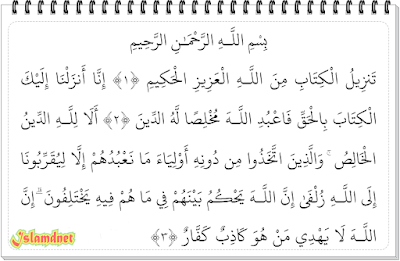 بِسْمِ اللَّـهِ الرَّحْمَـٰنِ الرَّحِيمِ
تَنزِيلُ الْكِتَابِ مِنَ اللَّـهِ الْعَزِيزِ الْحَكِيمِ ﴿١﴾ إِنَّا أَنزَلْنَا إِلَيْكَ
الْكِتَابَ بِالْحَقِّ فَاعْبُدِ اللَّـهَ مُخْلِصًا لَّهُ الدِّينَ ﴿٢﴾ أَلَا لِلَّـهِ الدِّينُ
الْخَالِصُ ۚ وَالَّذِينَ اتَّخَذُوا مِن دُونِهِ أَوْلِيَاءَ مَا نَعْبُدُهُمْ إِلَّا لِيُقَرِّبُونَا
إِلَى اللَّـهِ زُلْفَىٰ إِنَّ اللَّـهَ يَحْكُمُ بَيْنَهُمْ فِي مَا هُمْ فِيهِ يَخْتَلِفُونَ ۗ إِنَّ
اللَّـهَ لَا يَهْدِي مَنْ هُوَ كَاذِبٌ كَفَّارٌ ﴿٣﴾
Islamdnet